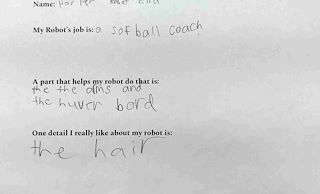 Name: Harper Robot Ella
My Robot's job is: a sofball coach
A part that helps my robot do that is:
the the arms and
the huver bord
One detail I really like about my robot is:
the hair